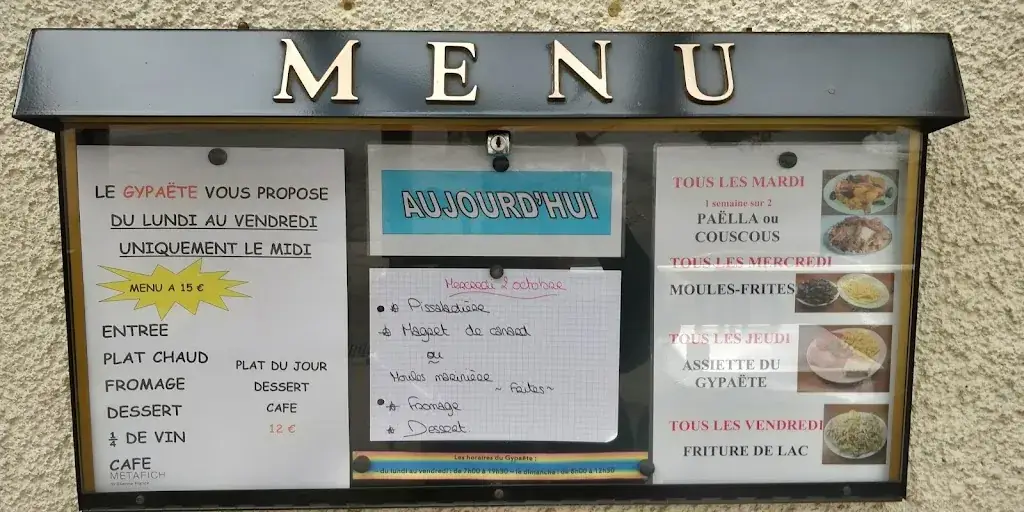 MENU
LE GYPAËTE VOUS PROPOSE
DU LUNDI AU VENDREDI
UNIQUEMENT LE MIDI
MENU A 15 €
ENTREE
PLAT CHAUD
FROMAGE
DESSERT
½ DE VIN
CAFE
METAFICH
PLAT DU JOUR
DESSERT
CAFE
12 €
AUJOURD'HUI
Mercredi 2 octobre
Pissaladière
Magret de canard
ou
Moules marinière
~ Frites ~
Fromage
Dessert
Les horaires du Gypaëte :
du lundi au vendredi : de 7h00 à 19h30 – le dimanche : de 8h00 à 12h30
TOUS LES MARDI
1 semaine sur 2
PAËLLA ou
COUSCOUS
TOUS LES MERCREDI
MOULES-FRITES
TOUS LES JEUDI
ASSIETTE DU
GYPAËTE
TOUS LES VENDREDI
FRITURE DE LAC